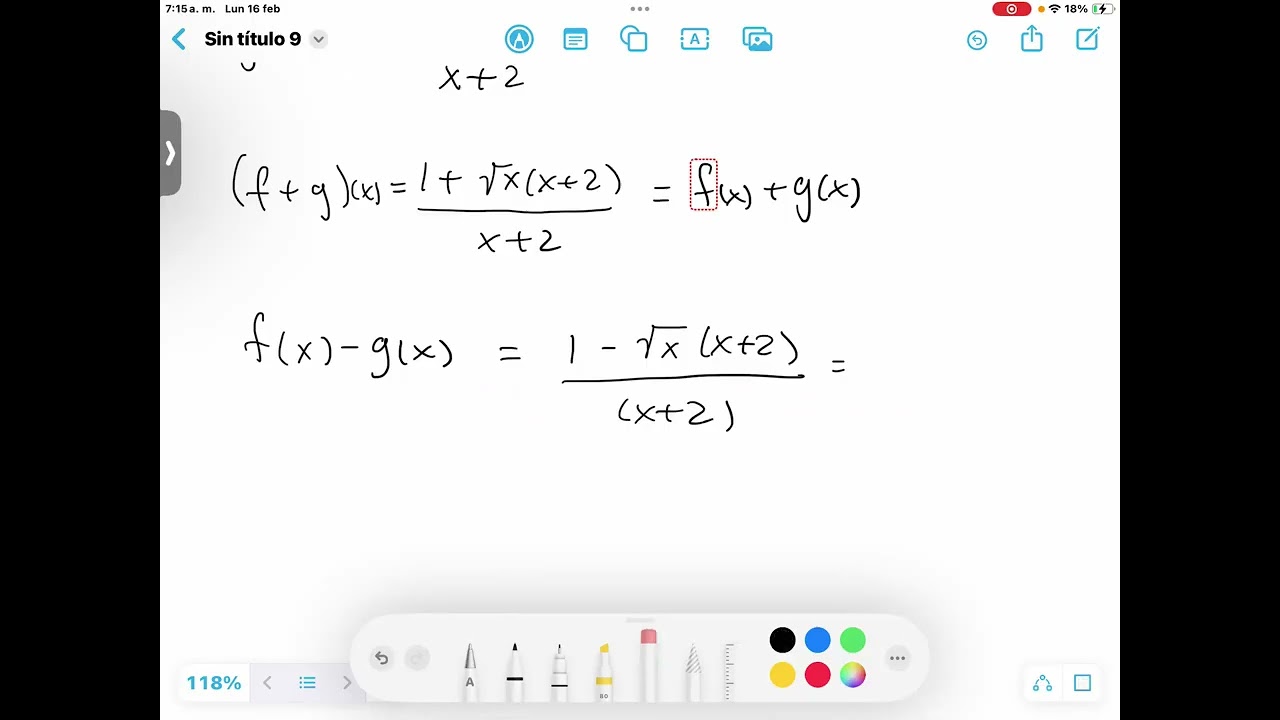 7:15 a. m. Lun 16 feb
18%
Sin título 9
A
x+2
(f+g)(x) = 1 + √x(x+2) / x+2 = f(x) + g(x)
f(x) - g(x) = 1 - √x (x+2) / (x+2) =
A
80
118%